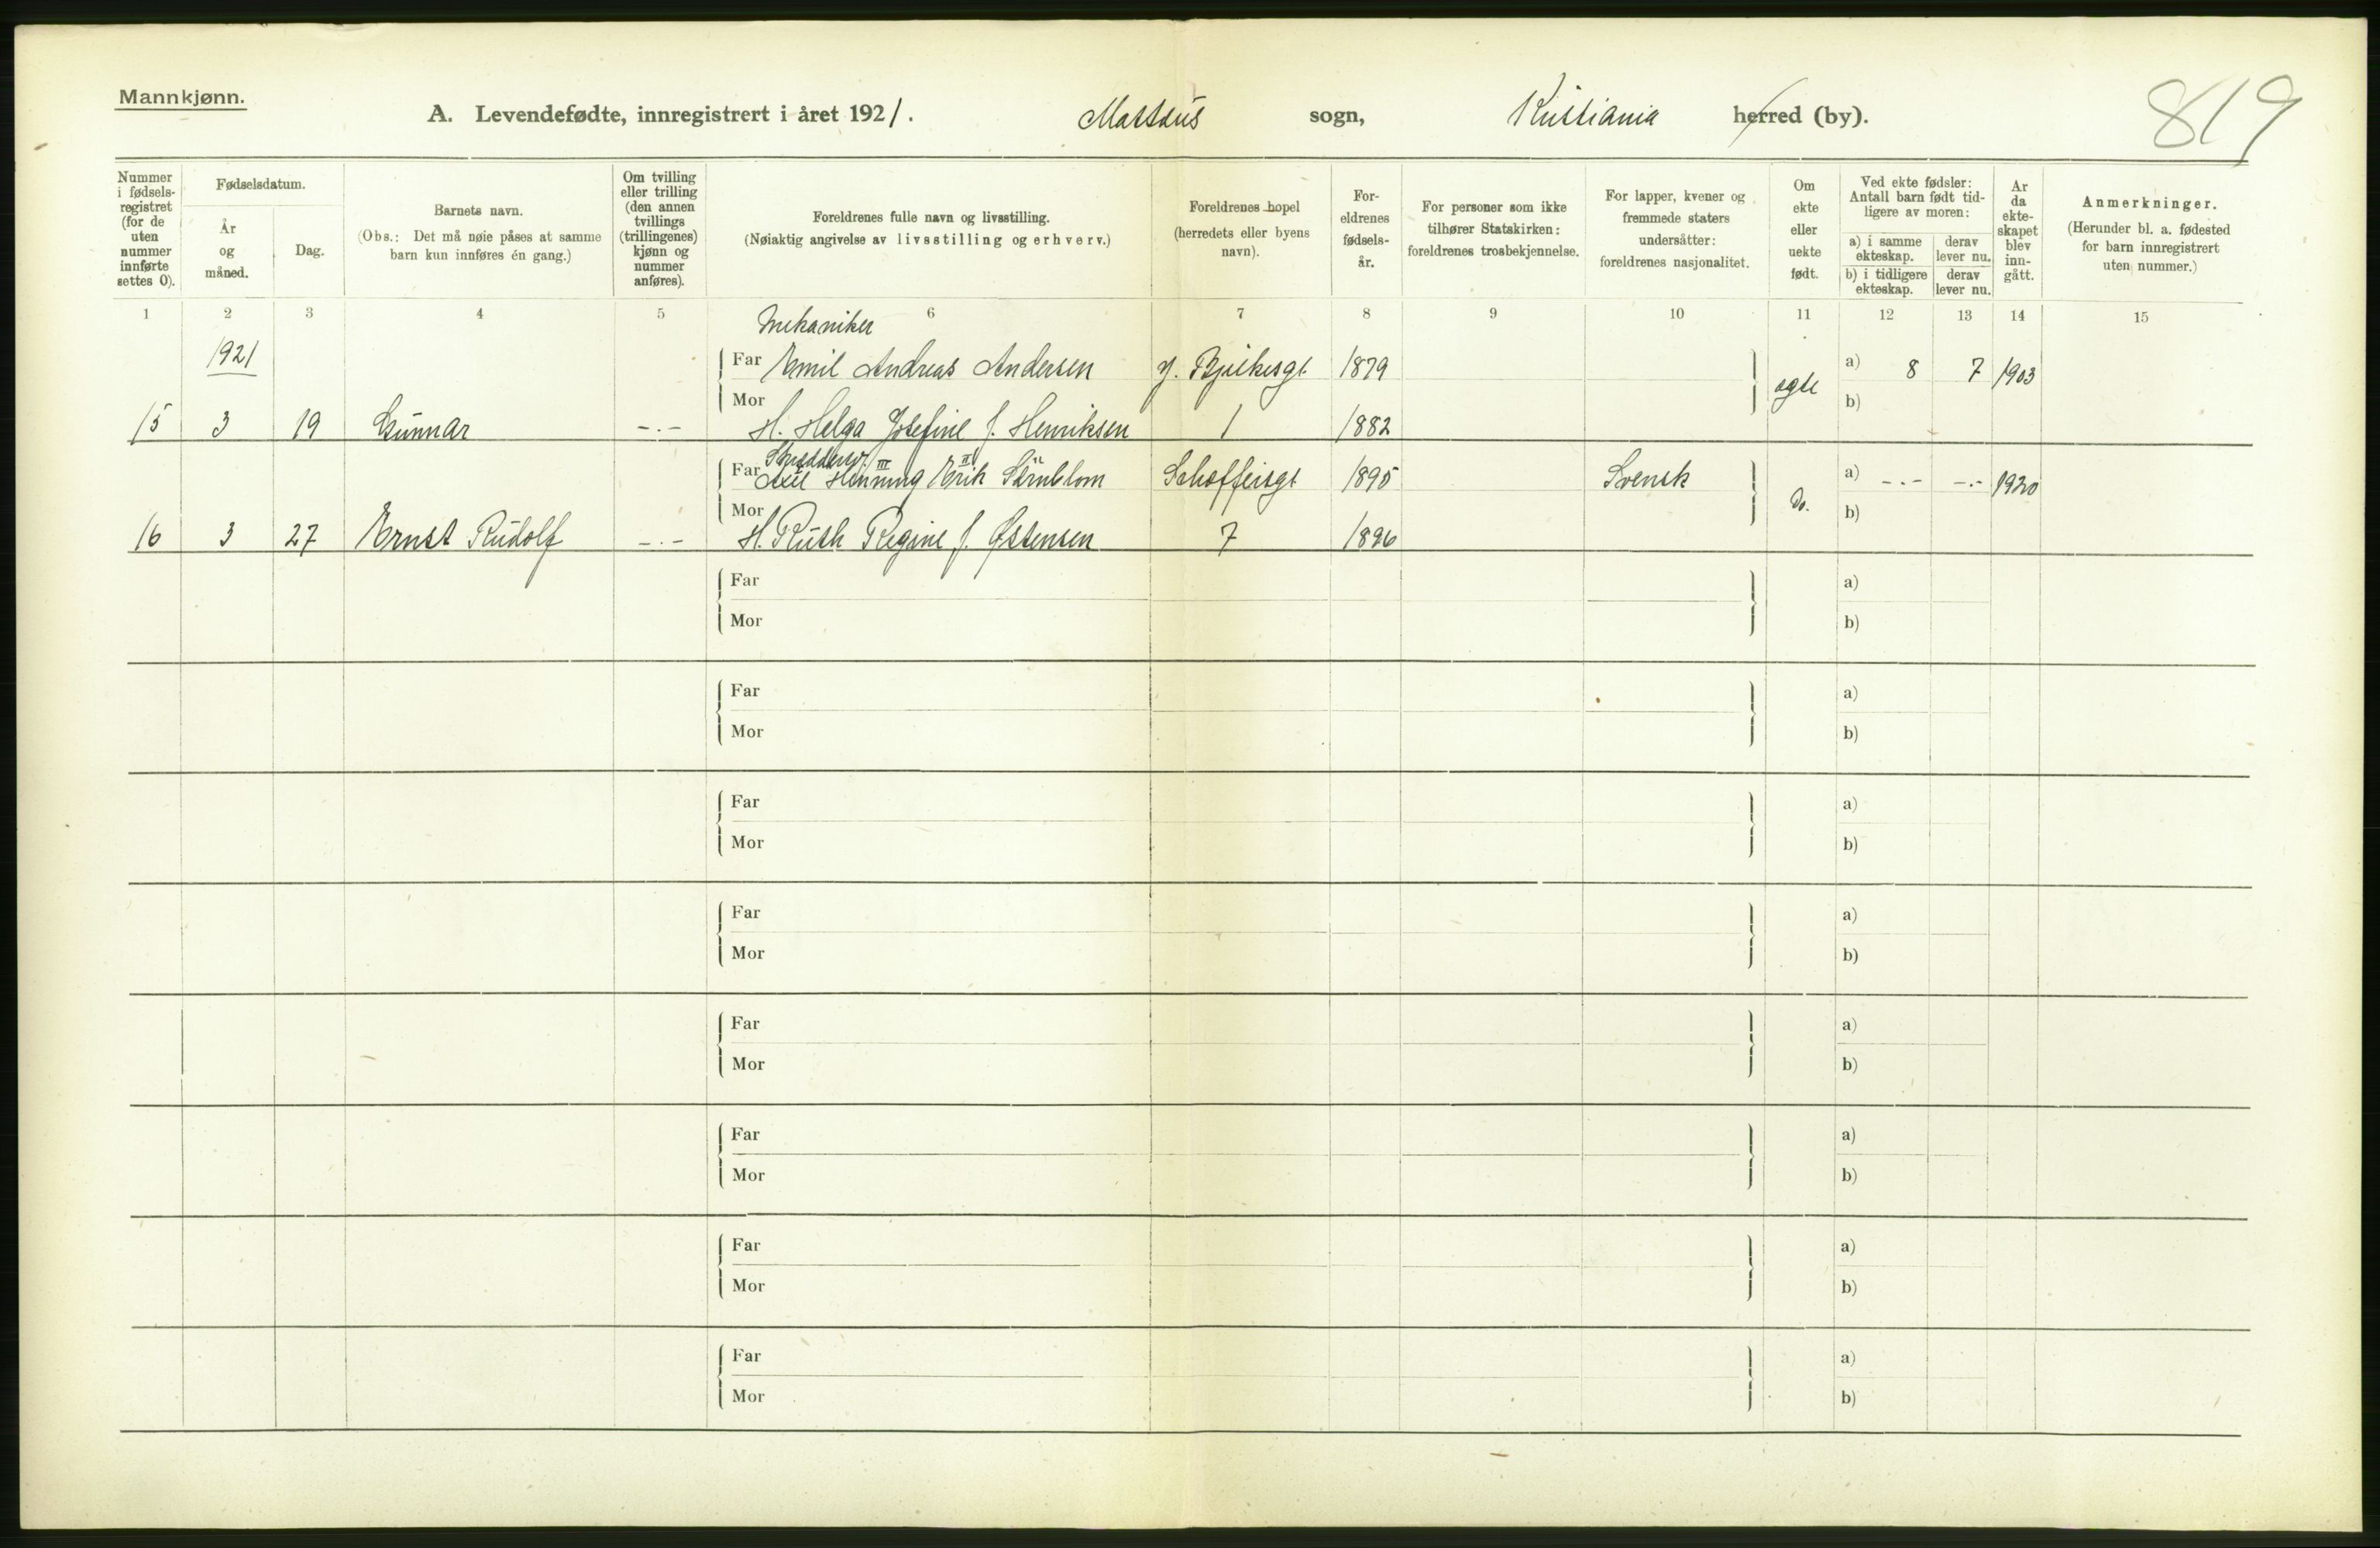 Mannkjønn.
A. Levendefødte, innregistrert i året 1921.
Mattæus sogn,
Kristiania herred (by).
819
Nummer i fødsels- registret (for de uten nummer innførte settes 0).
Fødselsdatum.
År og måned.
Dag.
Barnets navn.
(Obs.: Det må nøie påses at samme barn kun innføres én gang.)
Om tvilling eller trilling (den annen tvillings (trillingenes) kjønn og nummer anføres).
Foreldrenes fulle navn og livsstilling.
(Nøiaktig angivelse av livsstilling og erhverv.)
Foreldrenes bopel (herredets eller byens navn).
For- eldrenes fødsels- år.
For personer som ikke tilhører Statskirken: foreldrenes trosbekjennelse.
For lapper, kvener og fremmede staters undersåtter: foreldrenes nasjonalitet.
Om ekte eller uekte født.
Ved ekte fødsler: Antall barn født tid- ligere av moren:
a) i samme ekteskap.
derav lever nu.
b) i tidligere ekteskap.
derav lever nu.
År da ekte- skapet blev inn- gått.
Anmerkninger.
(Herunder bl. a. fødested for barn innregistrert uten nummer.)
1 2 3 4 5 6 7 8 9 10 11 12 13 14 15
Mekaniker
1921
Far Emil Andreas Andersen 1879 a) 8 7 1903
Mor ægte b)
15 3 19 Gunnar -.- H. Helga Josefine f. Henriksen 1 1882
Skredder
III II
Far Axel Henning Erik Särnblom Schæffersgt 1895 Svensk a) -.- -.- 1920
Mor Do. b)
16 3 27 Ernst Rudolf -.- H. Ruth Regine f. Østensen 7 1896
Far a)
Mor b)
Far a)
Mor b)
Far a)
Mor b)
Far a)
Mor b)
Far a)
Mor b)
Far a)
Mor b)
Far a)
Mor b)
Far a)
Mor b)